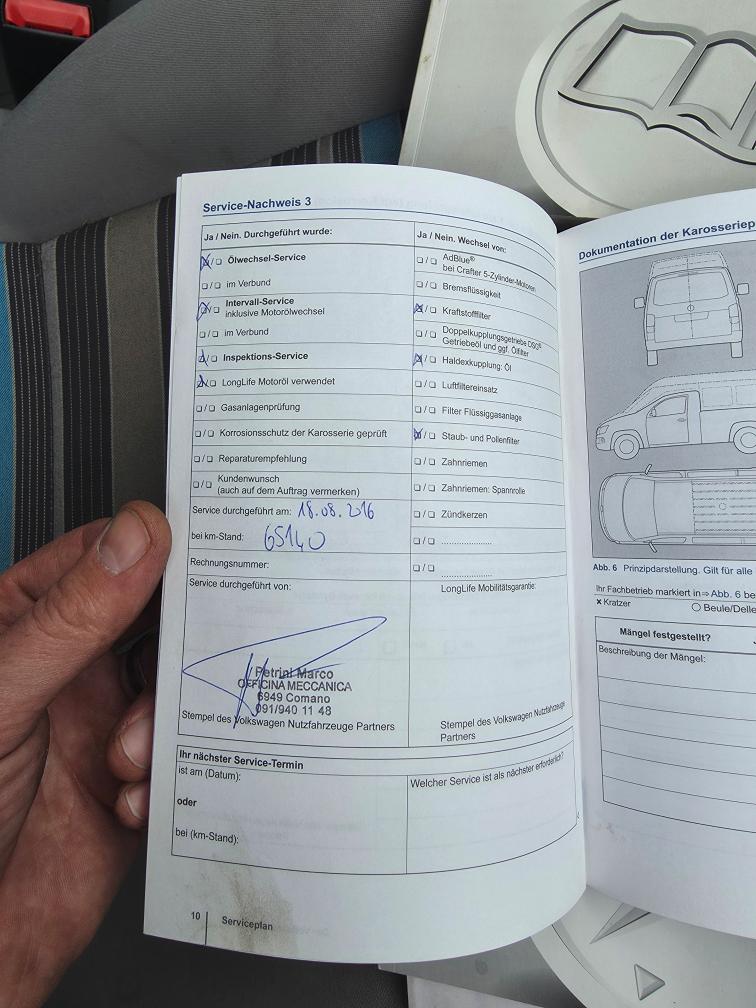 Service-Nachweis 3
Ja / Nein. Durchgeführt wurde:
☒/☐ Ölwechsel-Service
☐/☐ im Verbund
☒/☐ Intervall-Service
inklusive Motorölwechsel
☐/☐ im Verbund
☒/☐ Inspektions-Service
☒/☐ LongLife Motoröl verwendet
☐/☐ Gasanlagenprüfung
☐/☐ Korrosionsschutz der Karosserie geprüft
☐/☐ Reparaturempfehlung
☐/☐ Kundenwunsch
(auch auf dem Auftrag vermerken)
Service durchgeführt am: 18.08.2016
bei km-Stand: 65140
Rechnungsnummer:
Service durchgeführt von:
Petrini Marco
OFFICINA MECCANICA
6949 Comano
091/940 11 48
Stempel des Volkswagen Nutzfahrzeuge Partners
Ja / Nein. Wechsel von:
☐/☐ AdBlue®
bei Crafter 5-Zylinder-Motoren
☐/☐ Bremsflüssigkeit
☒/☐ Kraftstofffilter
☐/☐ Doppelkupplungsgetriebe DSG®
Getriebeöl und ggf. Ölfilter
☒/☐ Haldexkupplung: Öl
☐/☐ Luftfiltereinsatz
☐/☐ Filter Flüssiggasanlage
☒/☐ Staub- und Pollenfilter
☐/☐ Zahnriemen
☐/☐ Zahnriemen: Spannrolle
☐/☐ Zündkerzen
☐/☐ ....................
☐/☐ ....................
LongLife Mobilitätsgarantie:
Stempel des Volkswagen Nutzfahrzeuge
Partners
Ihr nächster Service-Termin
ist am (Datum):
oder
bei (km-Stand):
Welcher Service ist als nächster erforderlich?
10 Serviceplan
Dokumentation der Karosseriep
Abb. 6 Prinzipdarstellung. Gilt für alle
Ihr Fachbetrieb markiert in⇒Abb. 6 be
× Kratzer ○ Beule/Delle
Mängel festgestellt?
Beschreibung der Mängel: